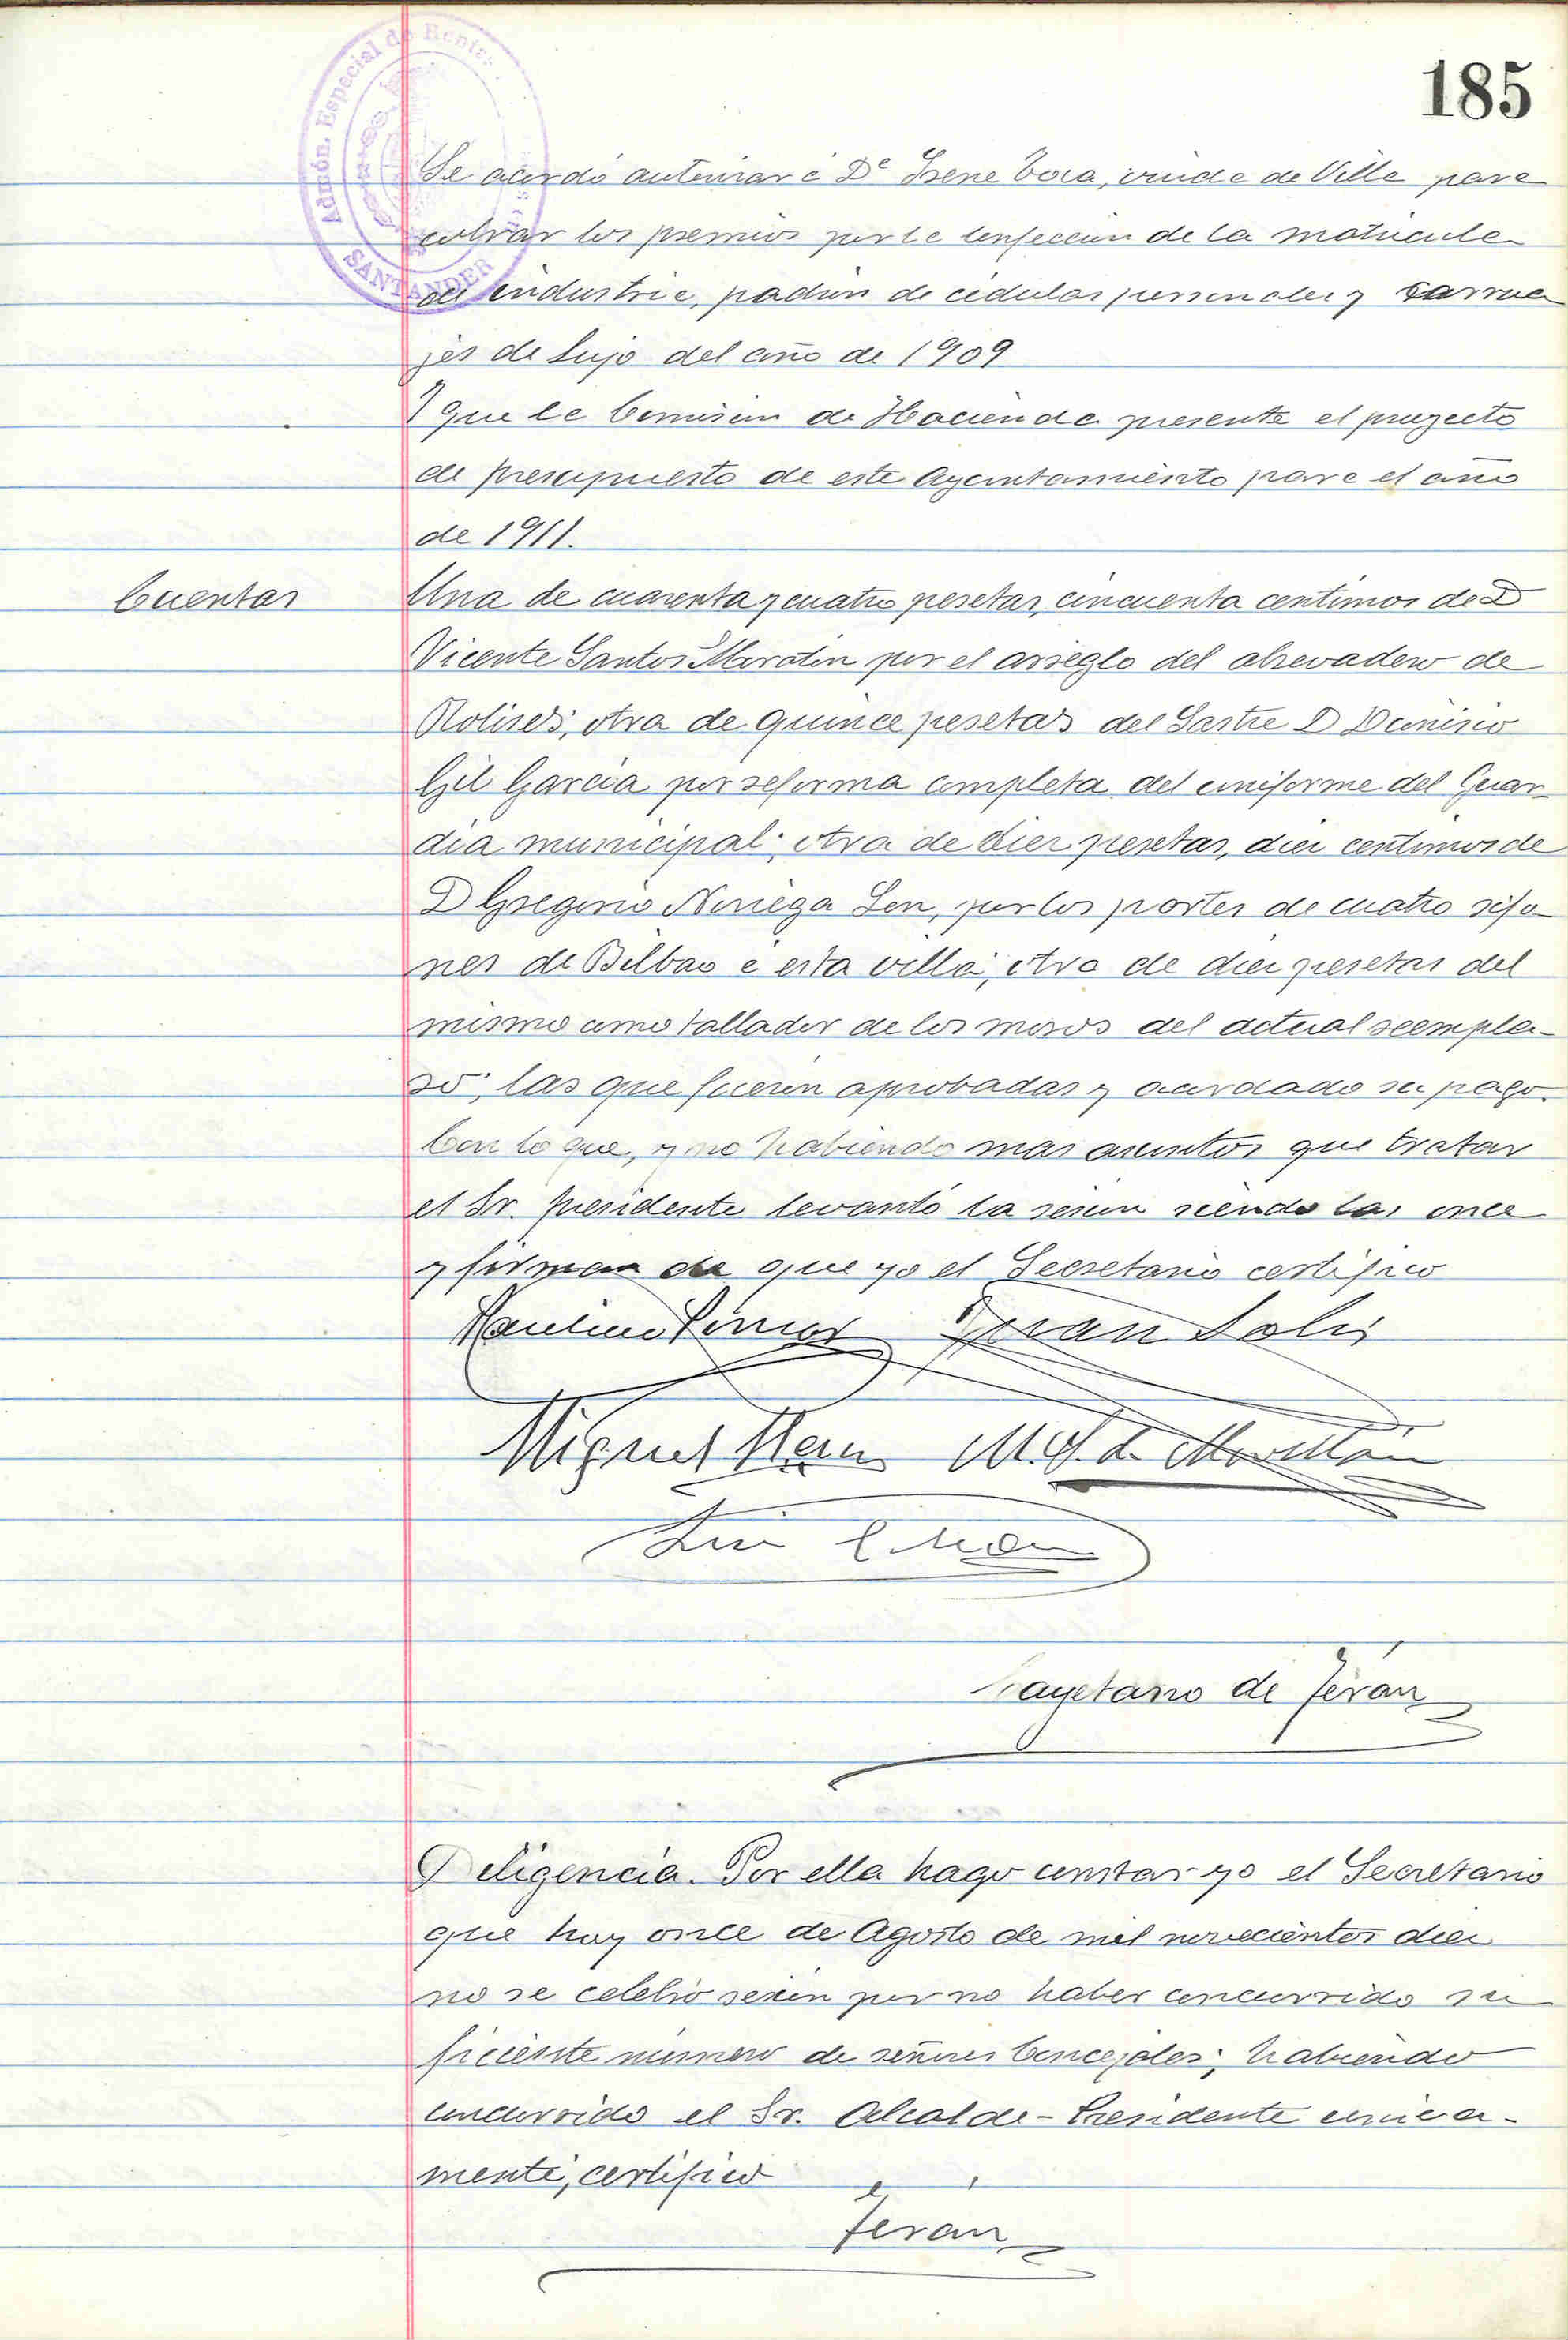 185
Admón. Especial de Rentas
SANTANDER
Se acordó autorizar á Dª Irene Cora, viuda de Villa para
cobrar los premios por la confección de la matricula
de industria, padron de cédulas personales y carrua
jes de lujo del año de 1909
Y que la Comision de Hacienda presente el proyecto
de presupuesto de este Ayuntamiento para el año
de 1911.
Cuentas
Una de cuarenta y cuatro pesetas, cincuenta centimos de D
Vicente Santos Martin por el arreglo del abrevadero de
otra de quince pesetas del Sastre D Dionisio
Gil Garcia por reforma completa del uniforme del Guar-
dia municipal; otra de diez pesetas, diez centimos de
D Gregorio Noriega Sen, por los portes de cuatro sifo-
nes de Bilbao á esta villa; otra de diez pesetas del
mismo como tallador de los mozos del actual reempla-
zo; las que fueron aprobadas y acordado su pago.
Con lo que, y no habiendo mas asuntos que tratar
el Sr. presidente levantó la sesion siendo las once
y firman de que yo el Secretario certifico
Juan Solis
Miguel M. G. de
Luis
Cayetano de Terán
Diligencia. Por ella hago constar yo el Secretario
que hoy once de Agosto de mil novecientos diez
no se celebró sesion por no haber concurrido su
ficiente número de señores Concejales; habiendo
concurrido el Sr. Alcalde-Presidente unica-
mente, certifico
Terán